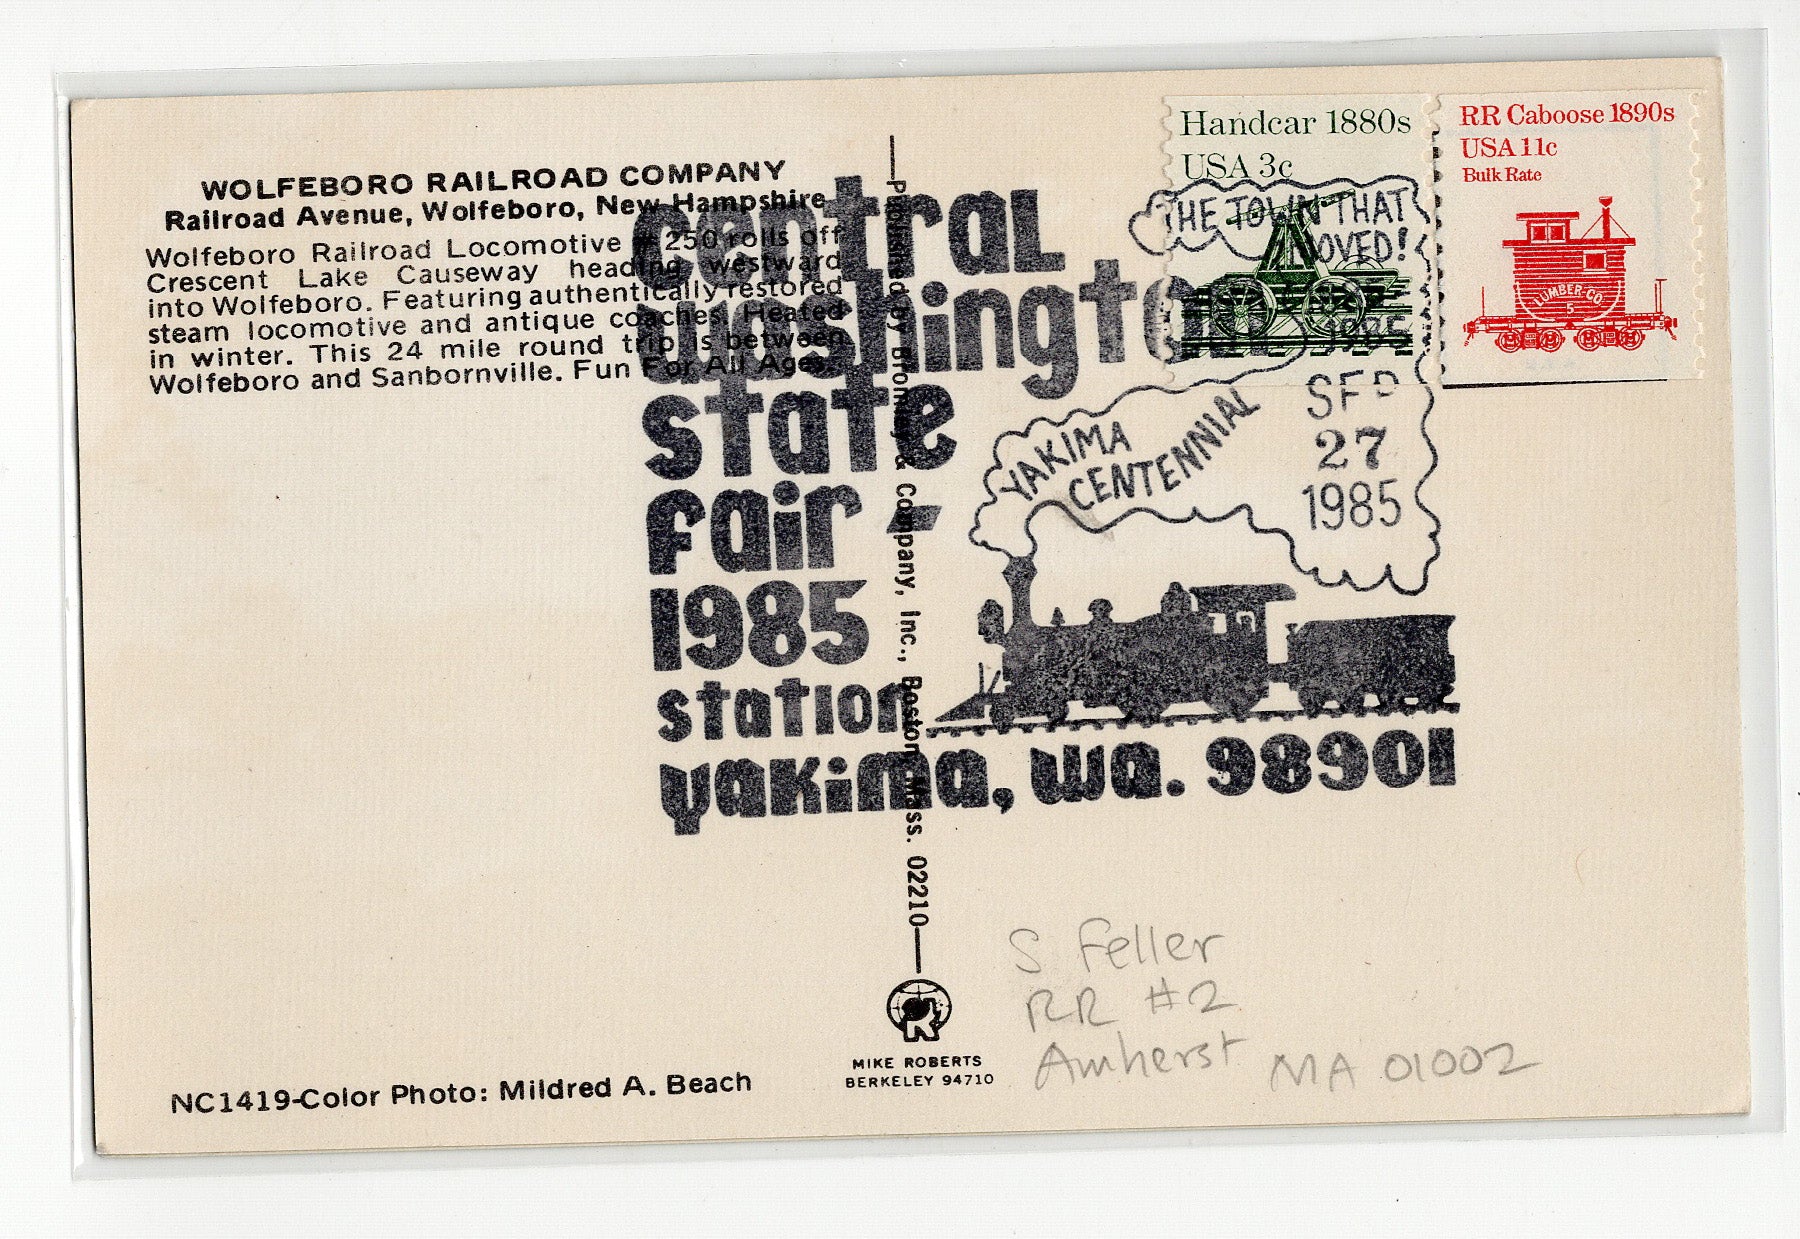 WOLFEBORO RAILROAD COMPANY
Railroad Avenue, Wolfeboro, New Hampshire
Wolfeboro Railroad Locomotive #250 rolls off
Crescent Lake Causeway heading westward
into Wolfeboro. Featuring authentically restored
steam locomotive and antique coaches. Heated
in winter. This 24 mile round trip is between
Wolfeboro and Sanbornville. Fun For All Ages.
Central
Washington
State
Fair -
1985
Station
Yakima, Wa. 98901
Published by Bromley & Company, Inc., Boston, Mass. 02210
Handcar 1880s
USA 3c
RR Caboose 1890s
USA 11c
Bulk Rate
LUMBER-CO
5
THE TOWN THAT
MOVED!
1885 1985
YAKIMA
CENTENNIAL
SEP
27
1985
S Feller
RR #2
Amherst MA 01002
R
MIKE ROBERTS
BERKELEY 94710
NC1419-Color Photo: Mildred A. Beach